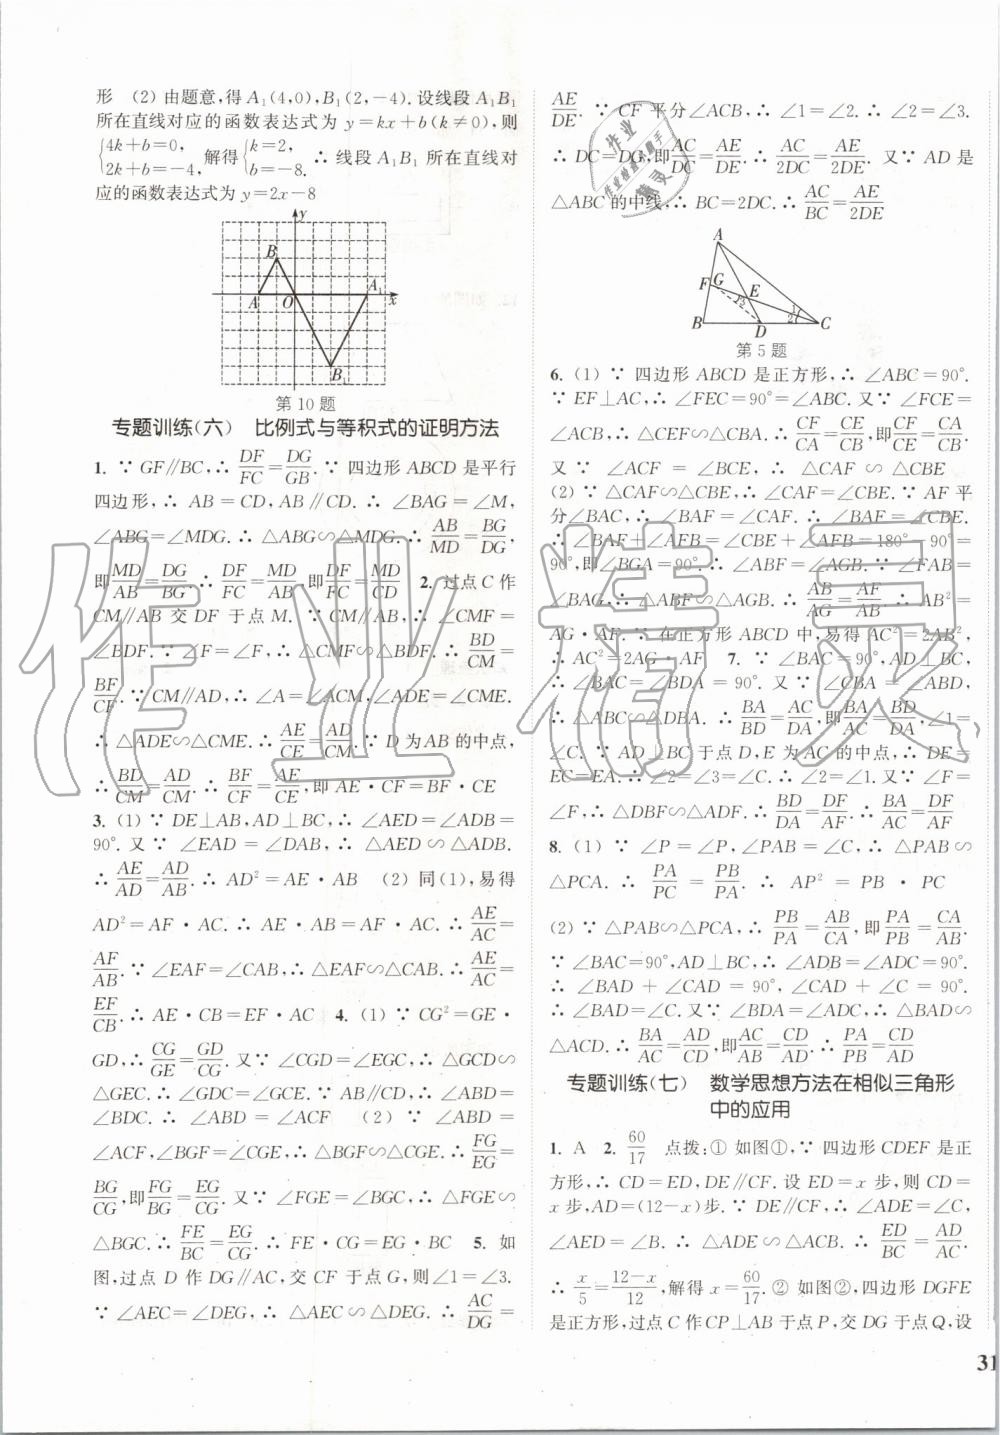 形 (2) 由题意,得 A₁(4,0),B₁(2,-4). 设线段 A₁B₁
所在直线对应的函数表达式为 y=kx+b(k≠0),则
{4k+b=0, 2k+b=-4, 解得 {k=2, b=-8. ∴ 线段 A₁B₁ 所在直线对
应的函数表达式为 y=2x-8
y
B
A
O
A₁
x
B₁
第 10 题
专题训练(六) 比例式与等积式的证明方法
1. ∵ GF∥BC,∴ DF/FC=DG/GB. ∵ 四边形 ABCD 是平行
四边形,∴ AB=CD,AB∥CD. ∴ ∠BAG=∠M,
∠ABG=∠MDG. ∴ △ABG∽△MDG. ∴ AB/MD=BG/DG,
即 MD/AB=DG/BG. ∴ DF/FC=MD/AB,即 DF/FC=MD/CD 2. 过点 C 作
CM∥AB 交 DF 于点 M. ∵ CM∥AB,∴ ∠CMF=
∠BDF. ∵ ∠F=∠F,∴ △CMF∽△BDF. ∴ BD/CM=
BF/CF. ∵ CM∥AD,∴ ∠A=∠ACM,∠ADE=∠CME.
∴ △ADE∽△CME. ∴ AE/CE=AD/CM. ∵ D 为 AB 的中点,
∴ BD/CM=AD/CM. ∴ BF/CF=AE/CE,即 AE·CF=BF·CE
3. (1) ∵ DE⊥AB,AD⊥BC,∴ ∠AED=∠ADB=
90°. 又∵ ∠EAD=∠DAB,∴ △AED∽△ADB.
∴ AE/AD=AD/AB. ∴ AD²=AE·AB (2) 同(1),易得
AD²=AF·AC. ∴ AE·AB=AF·AC. ∴ AE/AC=
AF/AB. ∵ ∠EAF=∠CAB,∴ △EAF∽△CAB. ∴ AE/AC=
EF/CB. ∴ AE·CB=EF·AC 4. (1) ∵ CG²=GE·
GD,∴ CG/GE=GD/CG. 又∵ ∠CGD=∠EGC,∴ △GCD∽
△GEC. ∴ ∠GDC=∠GCE. ∵ AB∥CD,∴ ∠ABD=
∠BDC. ∴ ∠ABD=∠ACF (2) ∵ ∠ABD=
∠ACF,∠BGF=∠CGE,∴ △BGF∽△CGE. ∴ FG/EG=
BG/CG,即 FG/BG=EG/CG. 又∵ ∠FGE=∠BGC,∴ △FGE∽
△BGC. ∴ FE/BC=EG/CG. ∴ FE·CG=EG·BC 5. 如
图,过点 D 作 DG∥AC,交 CF 于点 G,则∠1=∠3.
∵ ∠AEC=∠DEG,∴ △AEC∽△DEG. ∴ AC/DG=
AE/DE. ∵ CF 平分∠ACB,∴ ∠1=∠2. ∴ ∠2=∠3.
∴ DC=DG,即 AC/DC=AE/DE. ∴ AC/2DC=AE/2DE. 又∵ AD 是
△ABC 的中线,∴ BC=2DC. ∴ AC/BC=AE/2DE
A
F
G
E
3
1
2
B
D
C
第 5 题
6. (1) ∵ 四边形 ABCD 是正方形,∴ ∠ABC=90°.
∵ EF⊥AC,∴ ∠FEC=90°=∠ABC. 又∵ ∠FCE=
∠ACB,∴ △CEF∽△CBA. ∴ CF/CA=CE/CB,即 CF/CE=CA/CB.
又∵ ∠ACF=∠BCE,∴ △CAF∽△CBE
(2) ∵ △CAF∽△CBE,∴ ∠CAF=∠CBE. ∵ AF 平
分∠BAC,∴ ∠BAF=∠CAF. ∴ ∠BAF=∠CBE.
∴ ∠BAF+∠AFB=∠CBE+∠AFB=180°-90°=
90°,即∠BGA=90°. ∴ ∠ABF=∠AGB. ∵ ∠FAB=
∠BAG,∴ △ABF∽△AGB. ∴ AB/AG=AF/AB. ∴ AB²=
AG·AF. ∵ 在正方形 ABCD 中,易得 AC²=2AB²,
∴ AC²=2AG·AF 7. ∵ ∠BAC=90°,AD⊥BC,
∴ ∠BAC=∠BDA=90°. 又∵ ∠CBA=∠ABD,
∴ △ABC∽△DBA. ∴ BA/BD=AC/DA,即 BA/AC=BD/DA,∠1=
∠C. ∵ AD⊥BC 于点 D,E 为 AC 的中点,∴ DE=
EC=EA. ∴ ∠2=∠3=∠C. ∴ ∠2=∠1. 又∵ ∠F=
∠F,∴ △DBF∽△ADF. ∴ BD/DA=DF/AF. ∴ BA/AC=DF/AF
8. (1) ∵ ∠P=∠P,∠PAB=∠C,∴ △PAB∽
△PCA. ∴ PA/PC=PB/PA. ∴ AP²=PB·PC
(2) ∵ △PAB∽△PCA,∴ PB/PA=AB/CA,即 PA/PB=CA/AB.
∵ ∠BAC=90°,AD⊥BC,∴ ∠ADB=∠ADC=90°.
∴ ∠BAD+∠CAD=90°,∠CAD+∠C=90°.
∴ ∠BAD=∠C. 又∵ ∠BDA=∠ADC,∴ △BAD∽
△ACD. ∴ BA/AC=AD/CD,即 AC/AB=CD/AD. ∴ PA/PB=CD/AD
专题训练(七) 数学思想方法在相似三角形
中的应用
1. A 2. 60/17 点拨:① 如图①,∵ 四边形 CDEF 是正
方形,∴ CD=ED,DE∥CF. 设 ED=x 步,则 CD=
x 步,AD=(12-x)步. ∵ DE∥CF,∴ ∠ADE=∠C,
∠AED=∠B. ∴ △ADE∽△ACB. ∴ ED/BC=AD/AC.
∴ x/5=12-x/12,解得 x=60/17. ② 如图②,四边形 DGFE
是正方形,过点 C 作 CP⊥AB 于点 P,交 DG 于点 Q,设
31
作业精灵